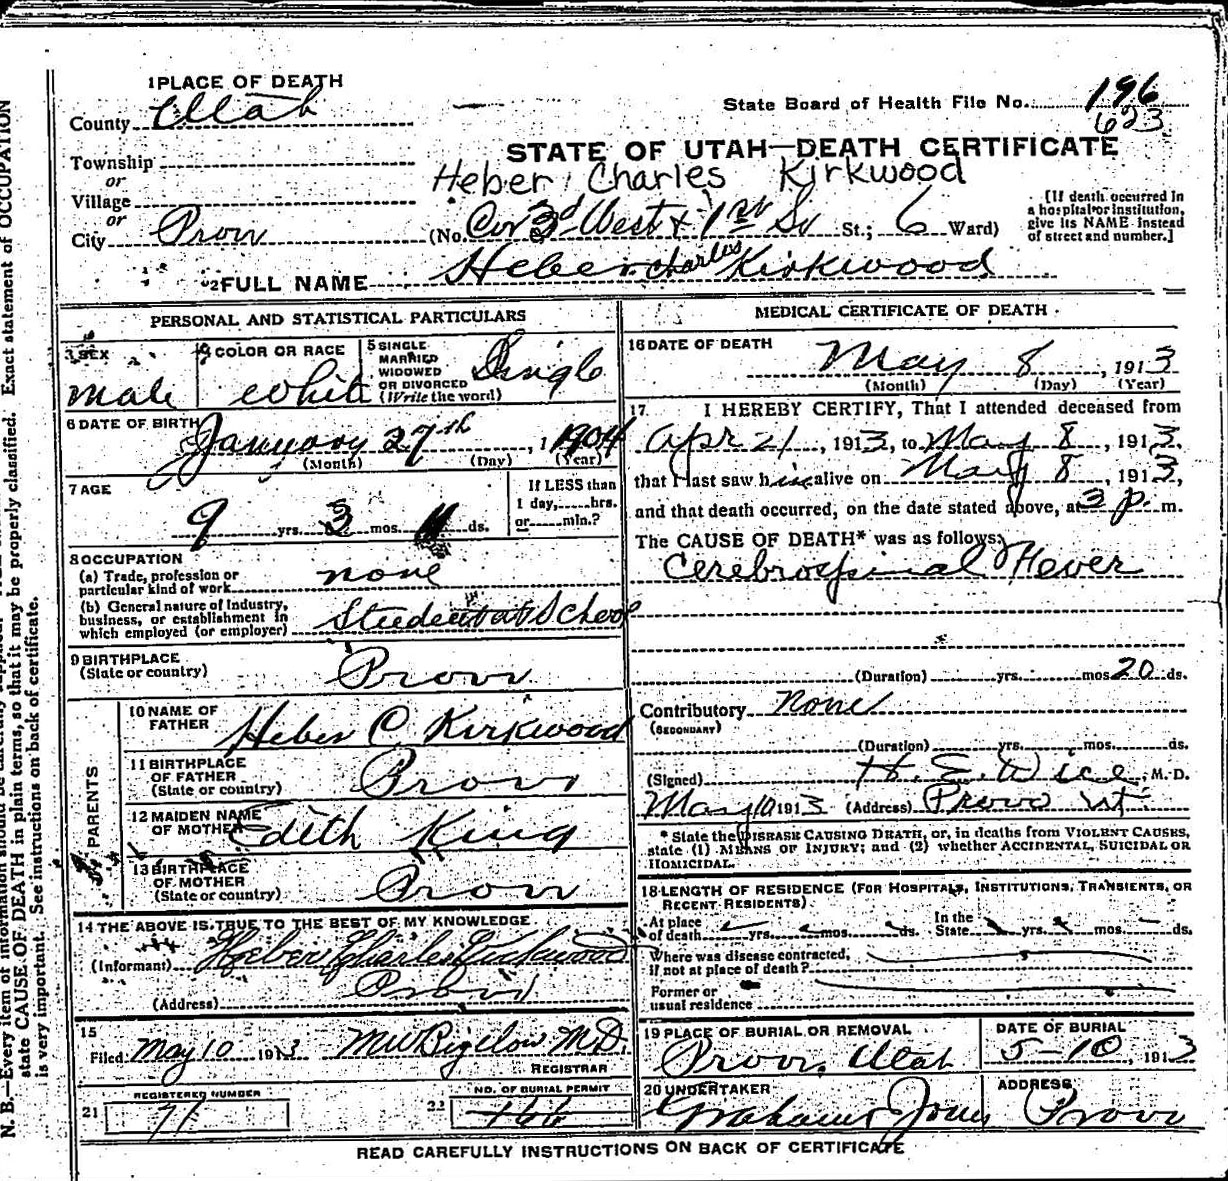 1 PLACE OF DEATH
State Board of Health File No. 196
623
County Utah
STATE OF UTAH—DEATH CERTIFICATE
Township
or
Heber Charles Kirkwood
Village
or
City Provo (No. Cor 3d West & 1st So St.; 6 Ward)
[If death occurred in
a hospital or institution,
give its NAME instead
of street and number.]
2 FULL NAME Heber Charles Kirkwood
PERSONAL AND STATISTICAL PARTICULARS
3 SEX
male
4 COLOR OR RACE
White
5 SINGLE
MARRIED
WIDOWED
OR DIVORCED
(Write the word)
Single
6 DATE OF BIRTH
January 27th, 1904
(Month) (Day) (Year)
7 AGE
9 yrs. 3 mos. 11 ds.
If LESS than
1 day, hrs.
or min.?
8 OCCUPATION
(a) Trade, profession or
particular kind of work none
(b) General nature of Industry,
business, or establishment in
which employed (or employer) Student at School
9 BIRTHPLACE
(State or country) Provo
PARENTS
10 NAME OF
FATHER Heber C Kirkwood
11 BIRTHPLACE
OF FATHER
(State or country) Provo
12 MAIDEN NAME
OF MOTHER Edith King
13 BIRTHPLACE
OF MOTHER
(State or country) Provo
14 THE ABOVE IS TRUE TO THE BEST OF MY KNOWLEDGE
(Informant) Heber Charles Kirkwood
(Address) Provo
15
Filed May 10 1913 MW Bigelow M.D.
REGISTRAR
REGISTERED NUMBER
21 71
NO. OF BURIAL PERMIT
22 166
MEDICAL CERTIFICATE OF DEATH
16 DATE OF DEATH
May 8, 1913
(Month) (Day) (Year)
17 I HEREBY CERTIFY, That I attended deceased from
Apr 21, 1913, to May 8, 1913,
that I last saw him alive on May 8, 1913,
and that death occurred, on the date stated above, at 3 p. m.
The CAUSE OF DEATH* was as follows:
Cerebrospinal Fever
(Duration) yrs. mos 20 ds.
Contributory None
(SECONDARY)
(Duration) yrs. mos. ds.
(Signed) H. E. Dice, M. D.
May 10 1913 (Address) Provo Ut
* State the DISEASE CAUSING DEATH, or, in deaths from VIOLENT CAUSES,
state (1) MEANS OF INJURY; and (2) whether ACCIDENTAL, SUICIDAL OR
HOMICIDAL.
18 LENGTH OF RESIDENCE (FOR HOSPITALS, INSTITUTIONS, TRANSIENTS, OR
RECENT RESIDENTS).
At place
of death yrs. mos. ds.
In the
State yrs. mos. ds.
Where was disease contracted,
if not at place of death?
Former or
usual residence
19 PLACE OF BURIAL OR REMOVAL
Provo, Utah
DATE OF BURIAL
5-10, 1913
20 UNDERTAKER
Graham Jones
ADDRESS
Provo
READ CAREFULLY INSTRUCTIONS ON BACK OF CERTIFICATE
state CAUSE OF DEATH in plain terms, so that it may be properly classified. Exact statement of OCCUPATION
is very important. See instructions on back of certificate.